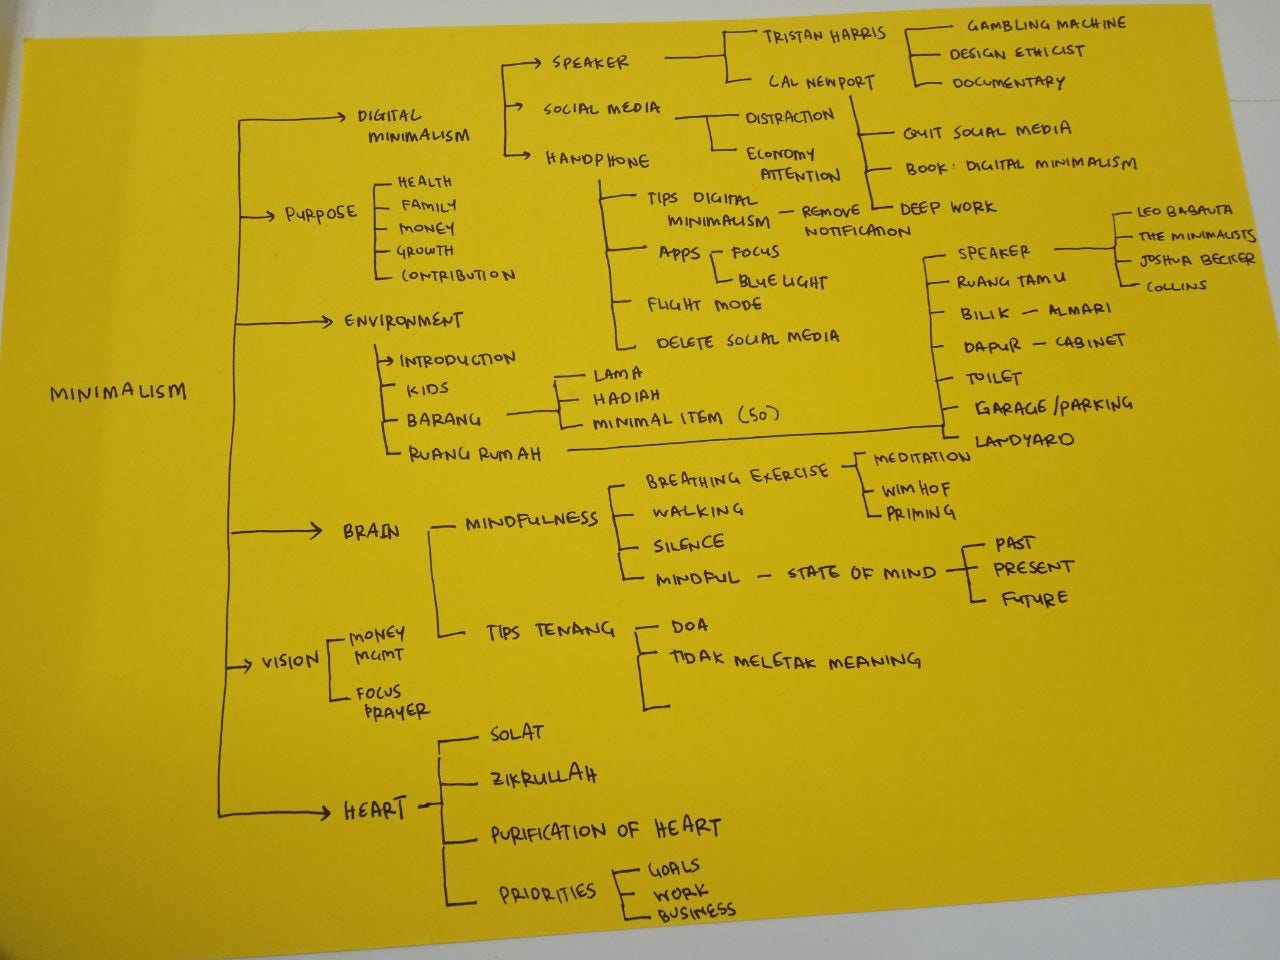 MINIMALISM
DIGITAL
MINIMALISM
SPEAKER
TRISTAN HARRIS
GAMBLING MACHINE
DESIGN ETHICIST
DOCUMENTARY
CAL NEWPORT
QUIT SOCIAL MEDIA
BOOK: DIGITAL MINIMALISM
DEEP WORK
SOCIAL MEDIA
DISTRACTION
ECONOMY
ATTENTION
HANDPHONE
TIPS DIGITAL
MINIMALISM — REMOVE
NOTIFICATION
APPS
FOCUS
BLUE LIGHT
FLIGHT MODE
DELETE SOCIAL MEDIA
PURPOSE
HEALTH
FAMILY
MONEY
GROWTH
CONTRIBUTION
ENVIRONMENT
INTRODUCTION
KIDS
BARANG
LAMA
HADIAH
MINIMAL ITEM (50)
RUANG RUMAH
SPEAKER
LEO BABAUTA
THE MINIMALISTS
JOSHUA BECKER
COLLINS
RUANG TAMU
BILIK — ALMARI
DAPUR — CABINET
TOILET
GARAGE/PARKING
LANDYARD
BRAIN
MINDFULNESS
BREATHING EXERCISE
MEDITATION
WIM HOF
PRIMING
WALKING
SILENCE
MINDFUL — STATE OF MIND
PAST
PRESENT
FUTURE
TIPS TENANG
DOA
TIDAK MELETAK MEANING
VISION
MONEY
MGMT
FOCUS
PRAYER
HEART
SOLAT
ZIKRULLAH
PURIFICATION OF HEART
PRIORITIES
GOALS
WORK
BUSINESS